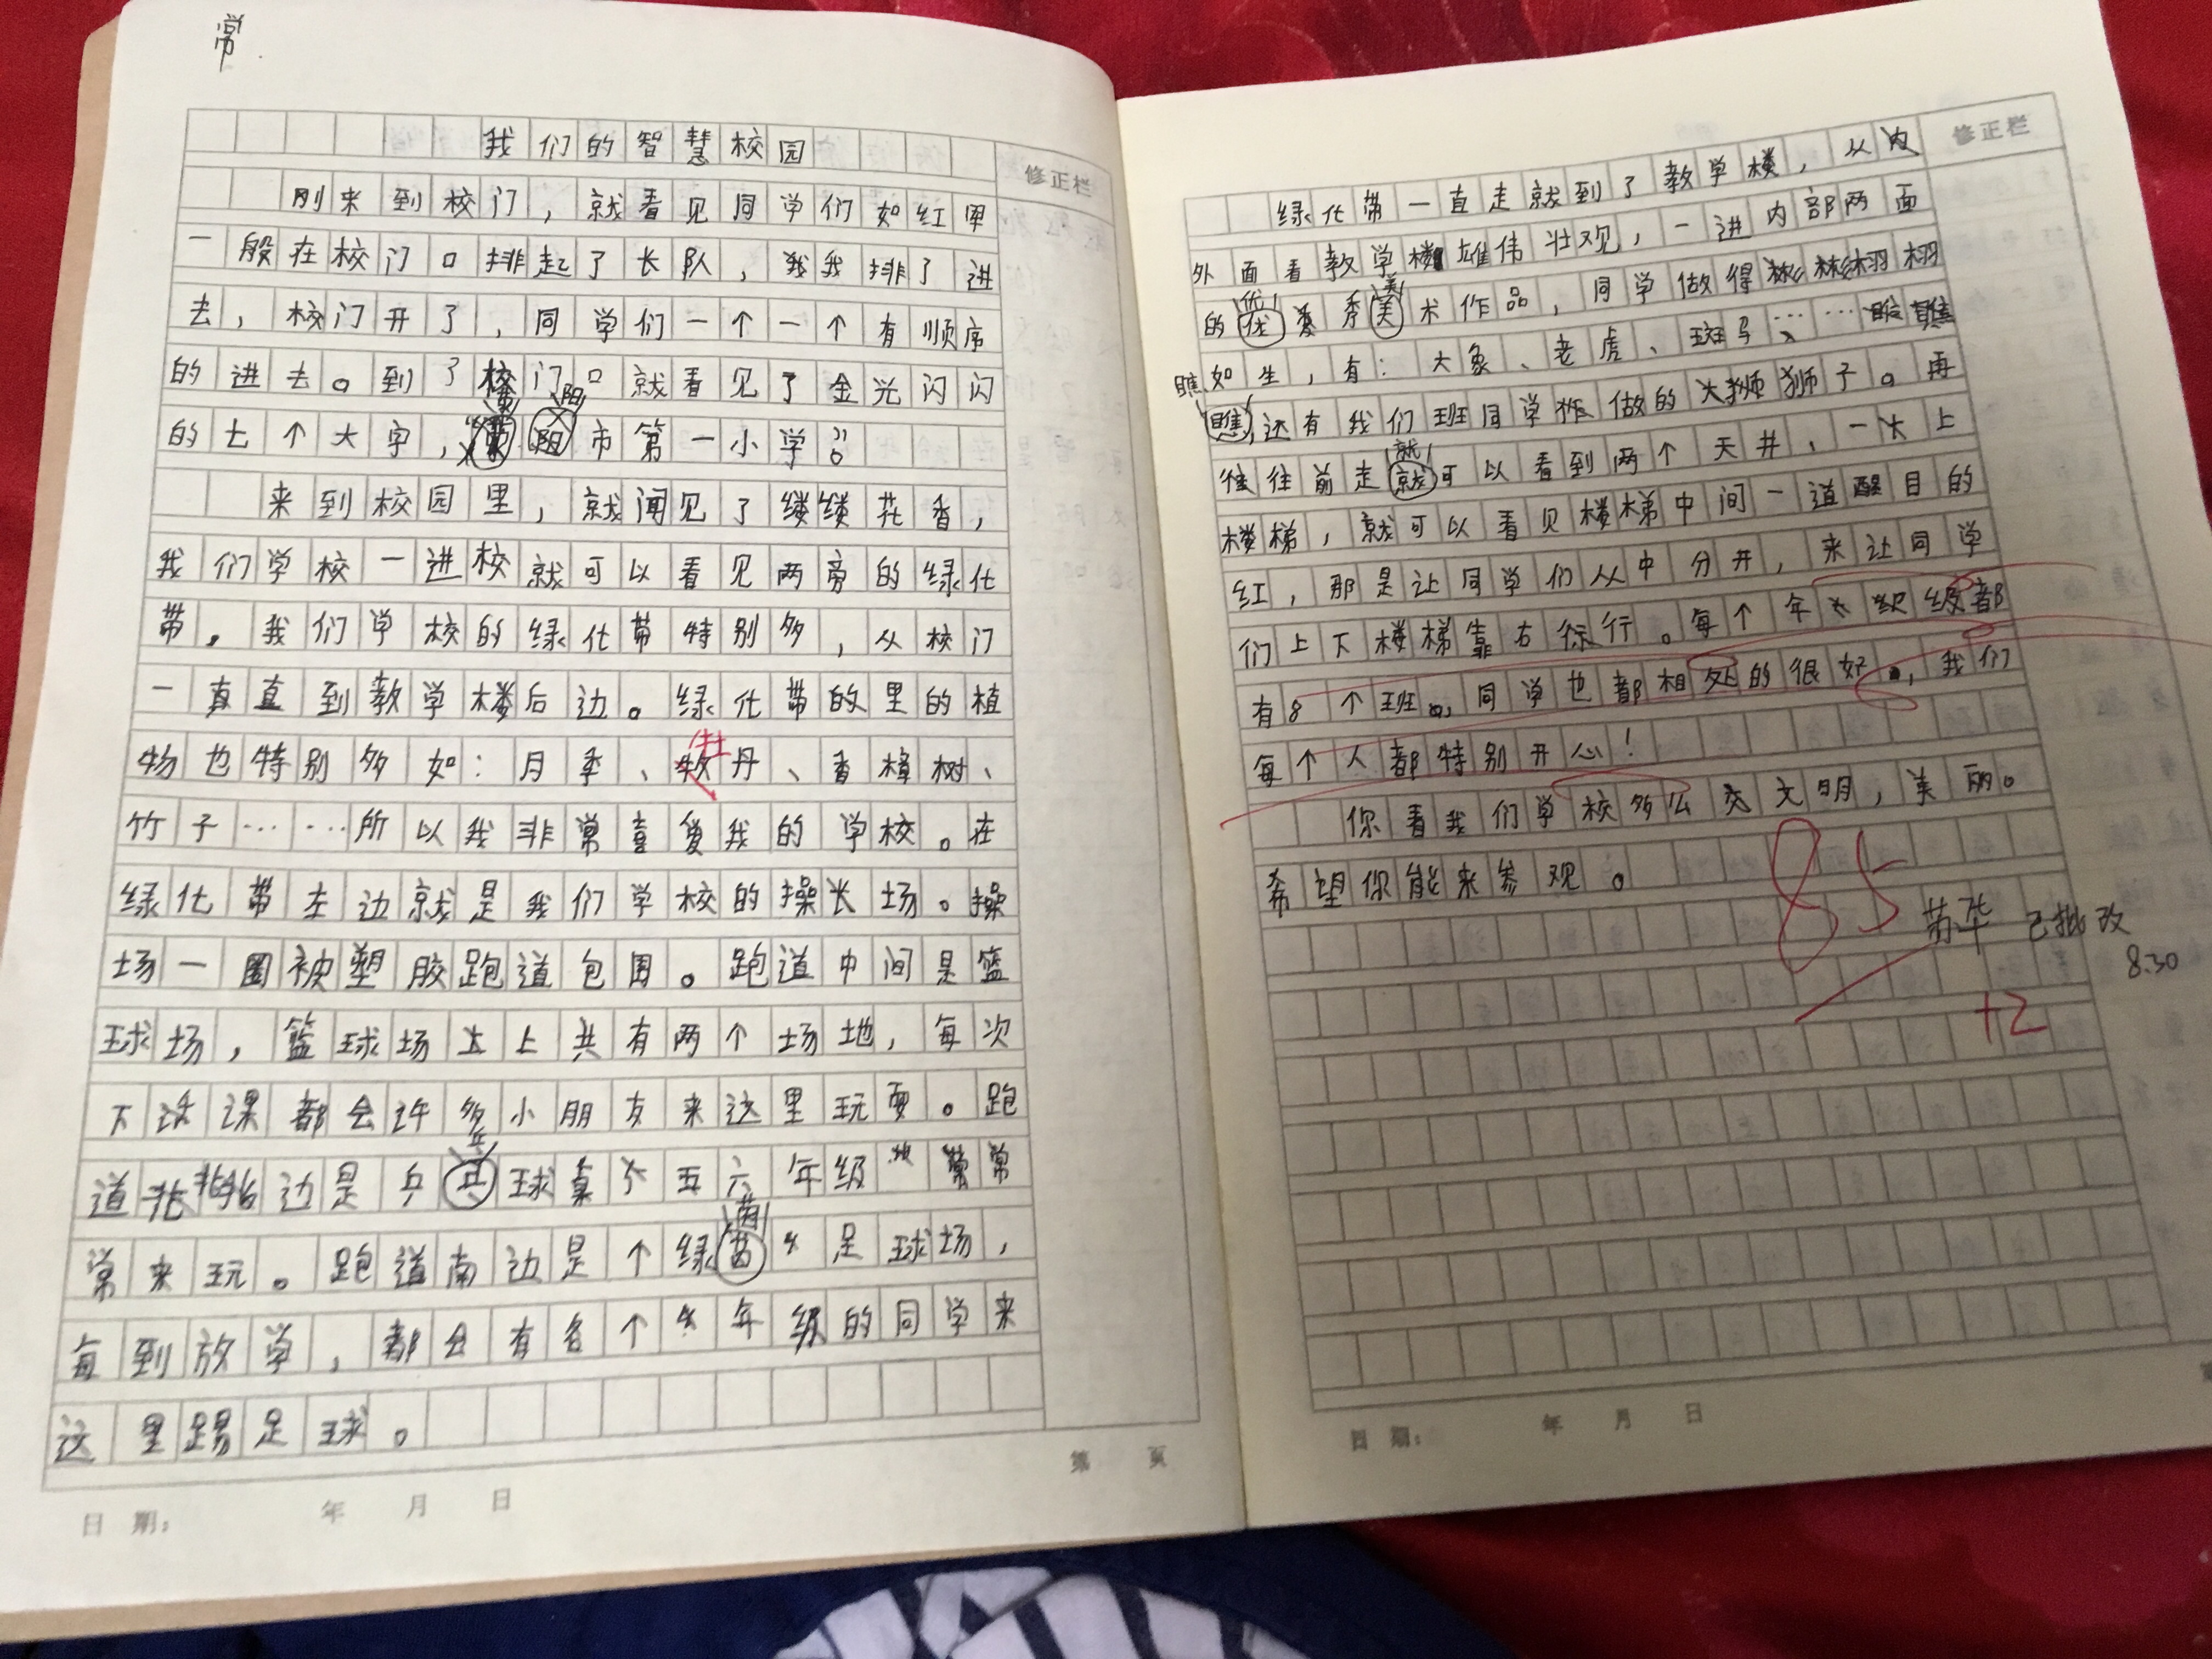 常
我们的智慧校园
修正栏
刚来到校门，就看见同学们如红军
一般在校门口排起了长队，我我排了进
去，校门开了，同学们一个一个有顺序
的进去。到了校门口就看见了金光闪闪
的七个大字，“荥阳市第一小学”。
来到校园里，就闻见了缕缕花香，
我们学校一进校就可以看见两旁的绿化
带。我们学校的绿化带特别多，从校门
一直直到教学楼后边。绿化带的里的植
物也特别多如：月季、牡丹、香樟树、
竹子……所以我非常喜爱我的学校。在
绿化带左边就是我们学校的操长场。操
场一圈被塑胶跑道包围。跑道中间是篮
球场，篮球场上共有两个场地，每次
下课都会许多小朋友来这里玩耍。跑
道边是乒乓球桌五六年级常
常来玩。跑道南边是个绿茵足球场，
每到放学，都会有各个年级的同学来
这里踢足球。
日期： 年 月 日
第 页
修正栏
绿化带一直走就到了教学楼，从
外面看教学楼雄伟壮观，一进内部两面
的优秀美术作品，同学做得栩栩
如生，有：大象、老虎、斑马……瞧
瞧，还有我们班同学做的大狮子。再
往前走就可以看到两个天井，一上
楼梯，就可以看见楼梯中间一道醒目的
红，那是让同学们从中分开，来让同学
们上下楼梯靠右行。每个年级都
有8个班，同学也都相处的很好，我们
每个人都特别开心！
你看我们学校多么文明，美丽。
希望你能来参观。
85
已批改
8.30
+2
日期： 年 月 日